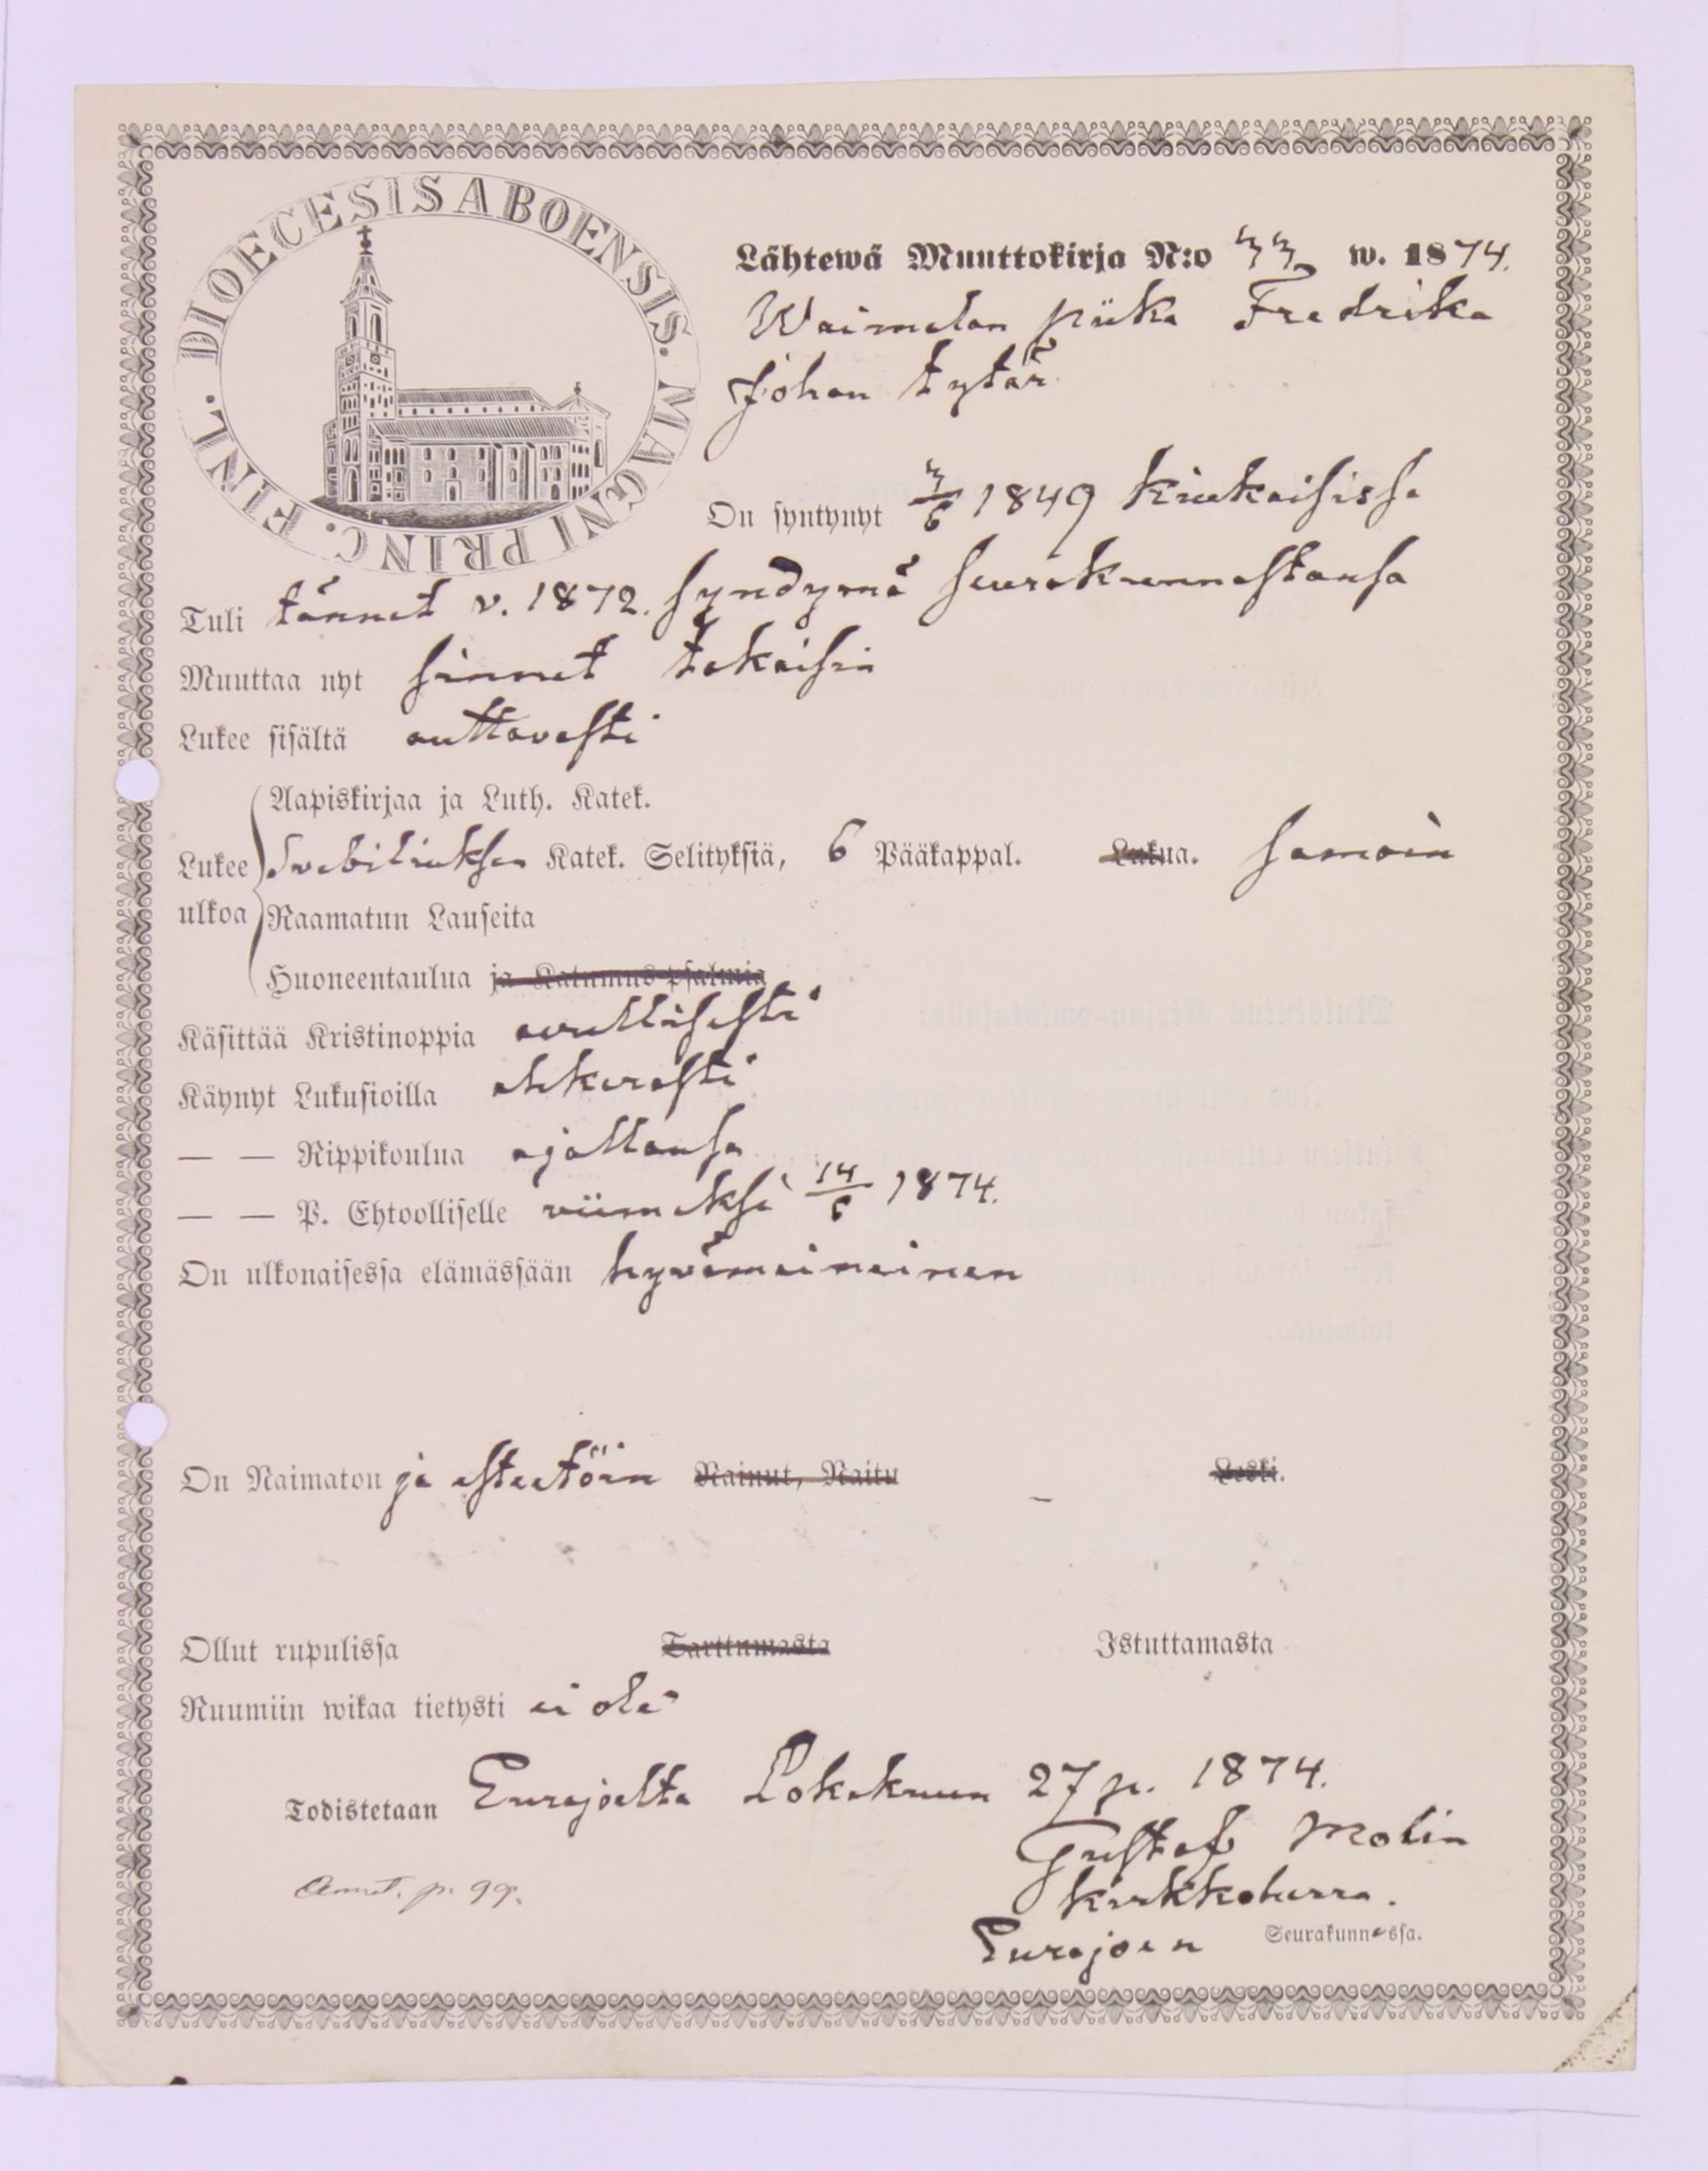 DIOECESIS ABOENSIS. MAGNI PRINC. FINL.
Lähtewä Muuttokirja N:o 33 w. 1874.
Waimalan piika Fredrika
Johan tytär
On syntynyt 3/6 1849 Kiukaisissa
Tuli tännet v. 1872. syndymä seurakunnastansa
Muuttaa nyt sinnet takaisin
Lukee sisältä auttavasti
Aapiskirjaa ja Luth. Katek.
Lukee Svebiliuksen Katek. Selityksiä, 6 Pääkappal. Lukua. samoin
ulkoa Raamatun Lauseita
Huoneentaulua ja Katumus-psalmia
Käsittää Kristinoppia avullisesti
Käynyt Lukusioilla ahkerasti
— — Rippikoulua ajallansa
— — P. Ehtoolliselle viimeksi 14/6 1874.
On ulkonaisessa elämässään hyvämaineinen
On Naimaton ja esteetöin Nainut, Naitu Leski.
Ollut rupulissa Tarttumasta Istuttamasta
Ruumiin wikaa tietysti ei ole
Todistetaan Eurajoelta Lokakuun 27 p. 1874.
Gustaf Molin
Annot. p. 99.
kirkkoherra.
Eurajoen Seurakunnassa.